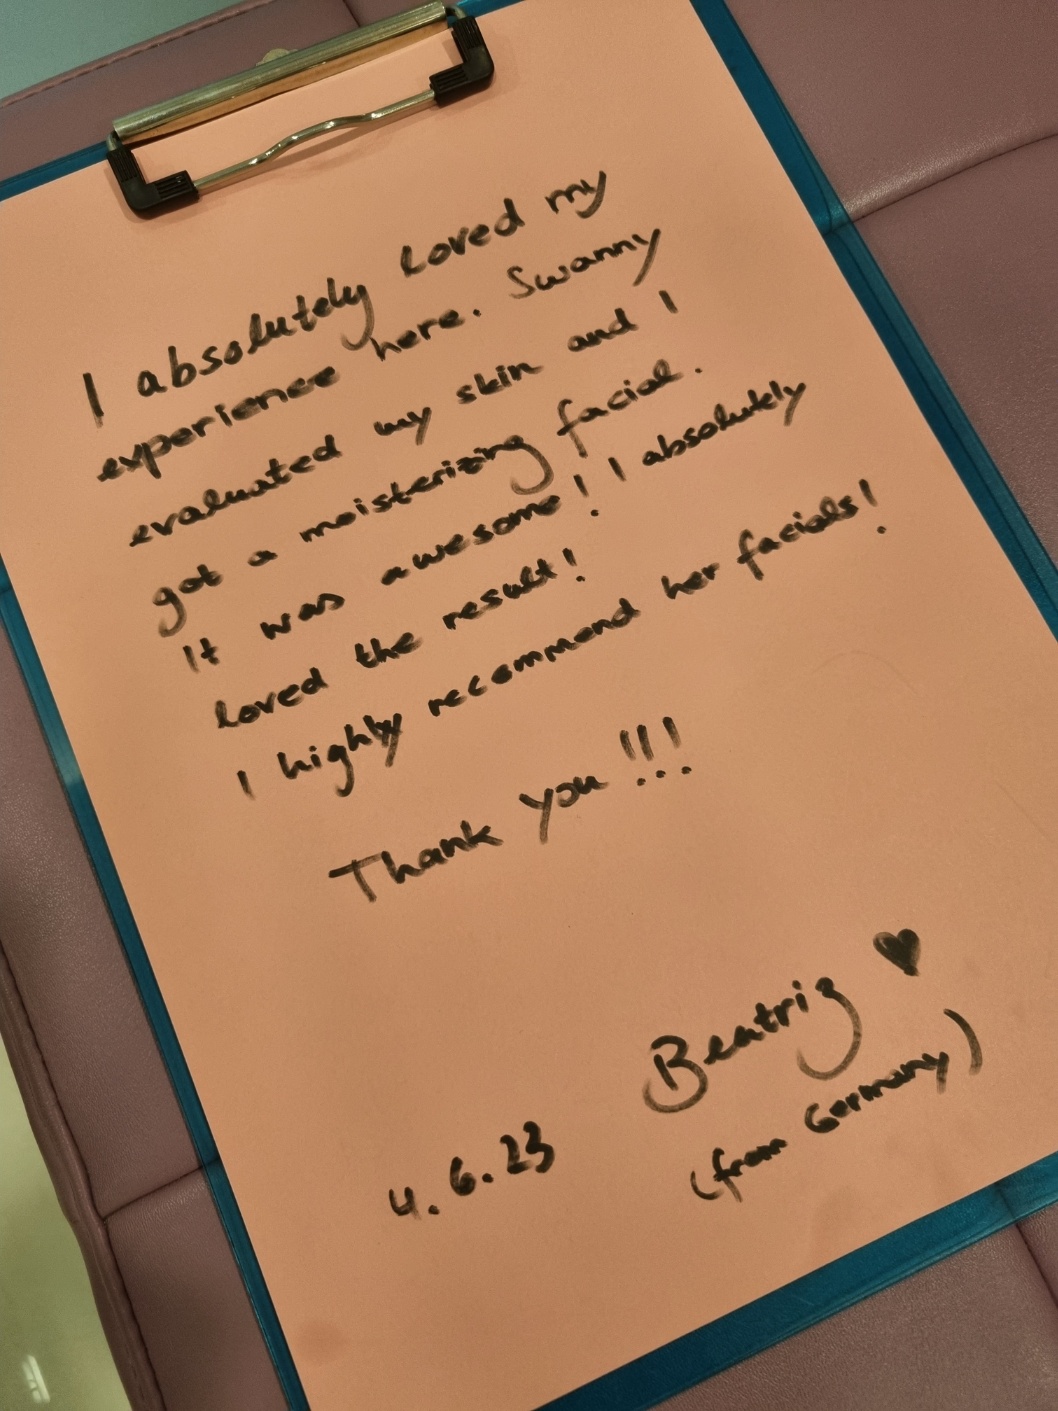 I absolutely loved my
experience here. Swanny
evaluated my skin and I
got a moisterizing facial.
It was awesome! I absolutely
loved the result!
I highly recommend her facials!
Thank you!!!
Beatriz ♥
(from Germany)
4.6.23